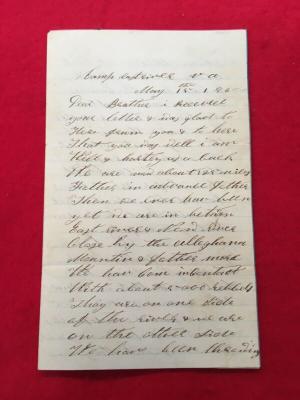 Camp East river v a
May 15th 186
Dear Brother i Received
your letter & was glad to
Hear from you & to here
That you was well i am
Well & harty as a buck
We are now about 125 miles
Farther in advance father
Then we ever hav ben
yet we are in between
East river & New river
Close by the alleghana
Mountin &
We hav Come in Contact
With about 2000 rebbels
They are on one side
of the river & we are
on the other side
We have been